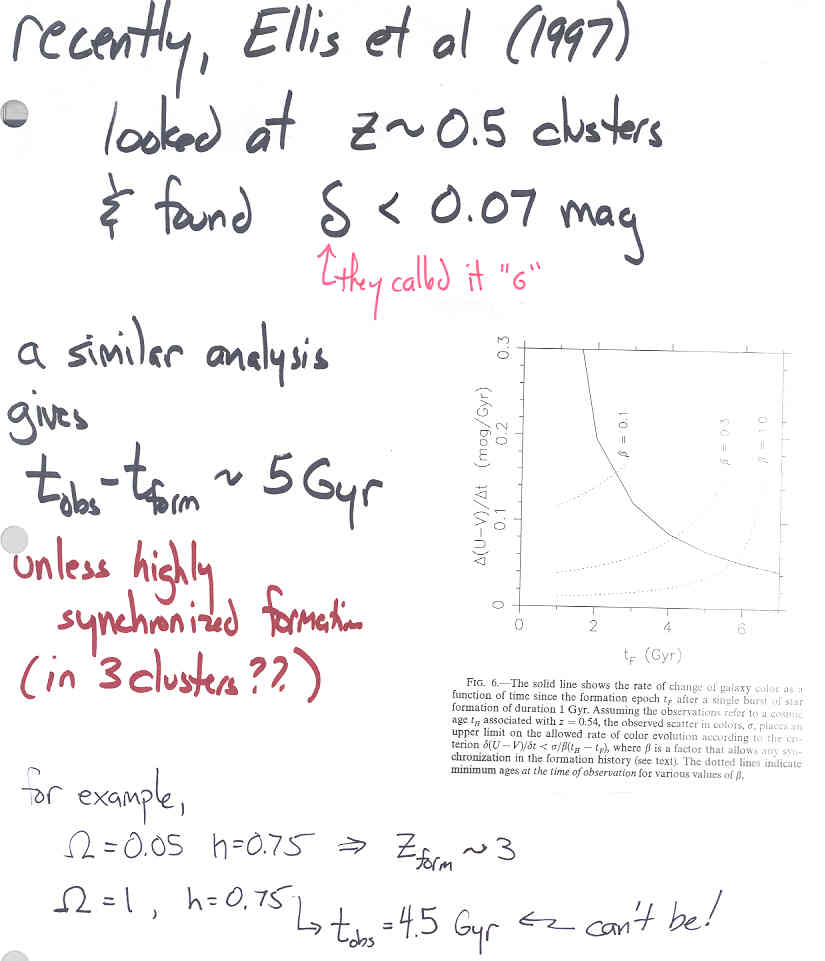 recently, Ellis et al (1997)
looked at z~0.5 clusters
& found δ < 0.07 mag
↑ they called it "σ"
a similar analysis
gives
t_obs - t_form ~ 5 Gyr
unless highly
synchronized formation
(in 3 clusters??)
0.3
0.2
0.1
0
Δ(U−V)/Δt (mag/Gyr)
β = 0.1
β = 0.3
β = 1.0
0 2 4 6
t_F (Gyr)
FIG. 6.—The solid line shows the rate of change of galaxy color as a
function of time since the formation epoch t_F after a single burst of star
formation of duration 1 Gyr. Assuming the observations refer to a cosmic
age t_H associated with z = 0.54, the observed scatter in colors, σ, places an
upper limit on the allowed rate of color evolution according to the cri-
terion δ(U − V)/δt < σ/β(t_H − t_F), where β is a factor that allows any syn-
chronization in the formation history (see text). The dotted lines indicate
minimum ages at the time of observation for various values of β.
for example,
Ω = 0.05 h=0.75 ⇒ z_form ~ 3
Ω = 1, h = 0.75
↳ t_obs = 4.5 Gyr ⇐ can't be!